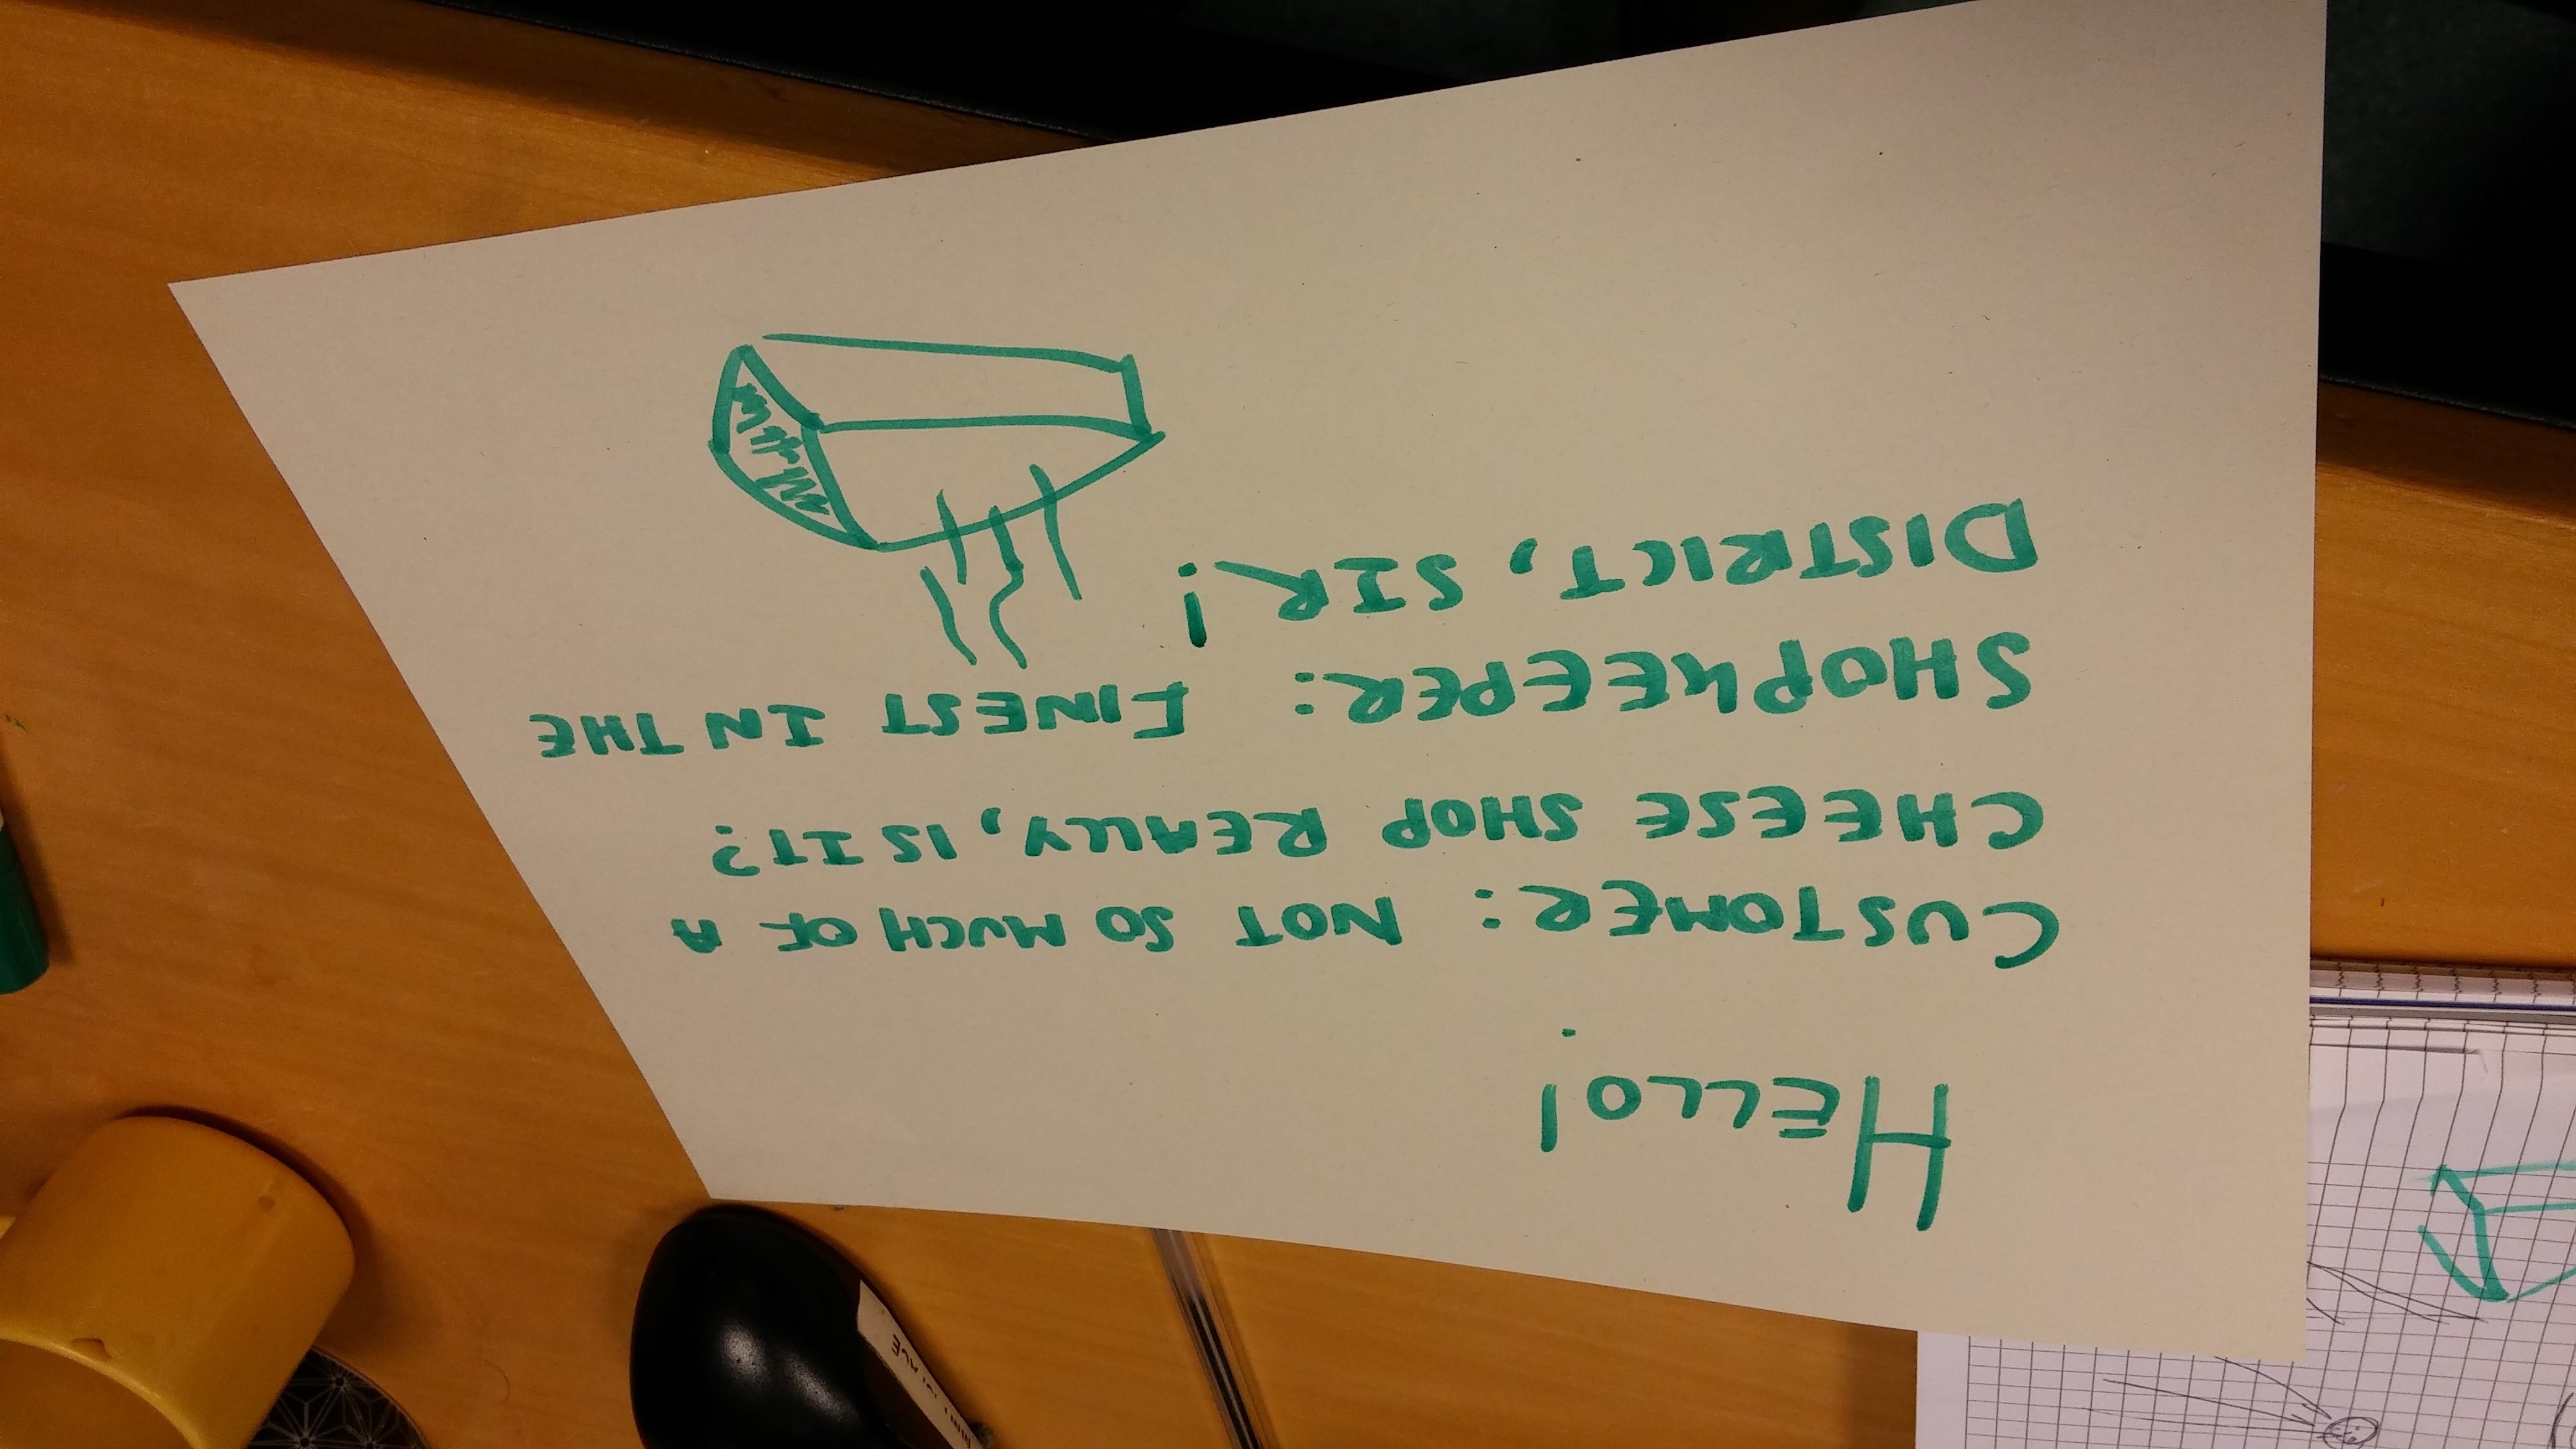 HELLO!
CUSTOMER: NOT SO MUCH OF A
CHEESE SHOP REALLY, IS IT?
SHOPKEEPER: FINEST IN THE
DISTRICT, SIR!